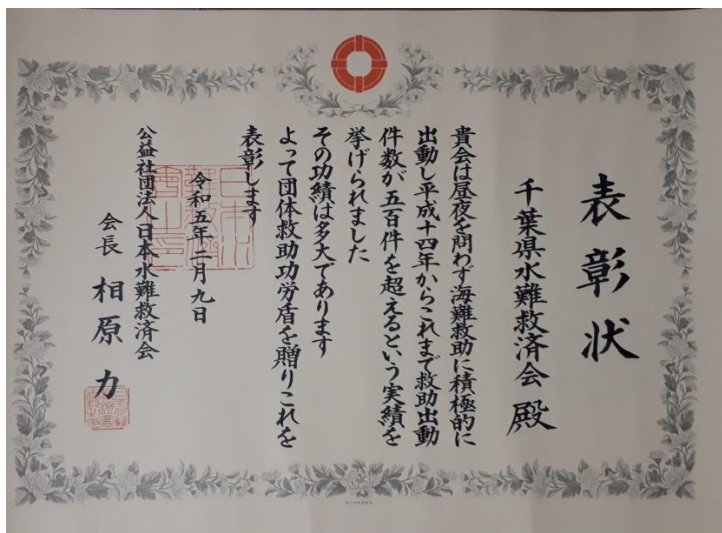 表彰状
千葉県水難救済会 殿
貴会は昼夜を問わず海難救助に積極的に
出動し平成十四年からこれまで救助出動
件数が五百件を超えるという実績を
挙げられました
その功績は多大であります
よって団体救助功労盾を贈りこれを
表彰します
令和五年二月九日
公益社団法人日本水難救済会
会長 相原力